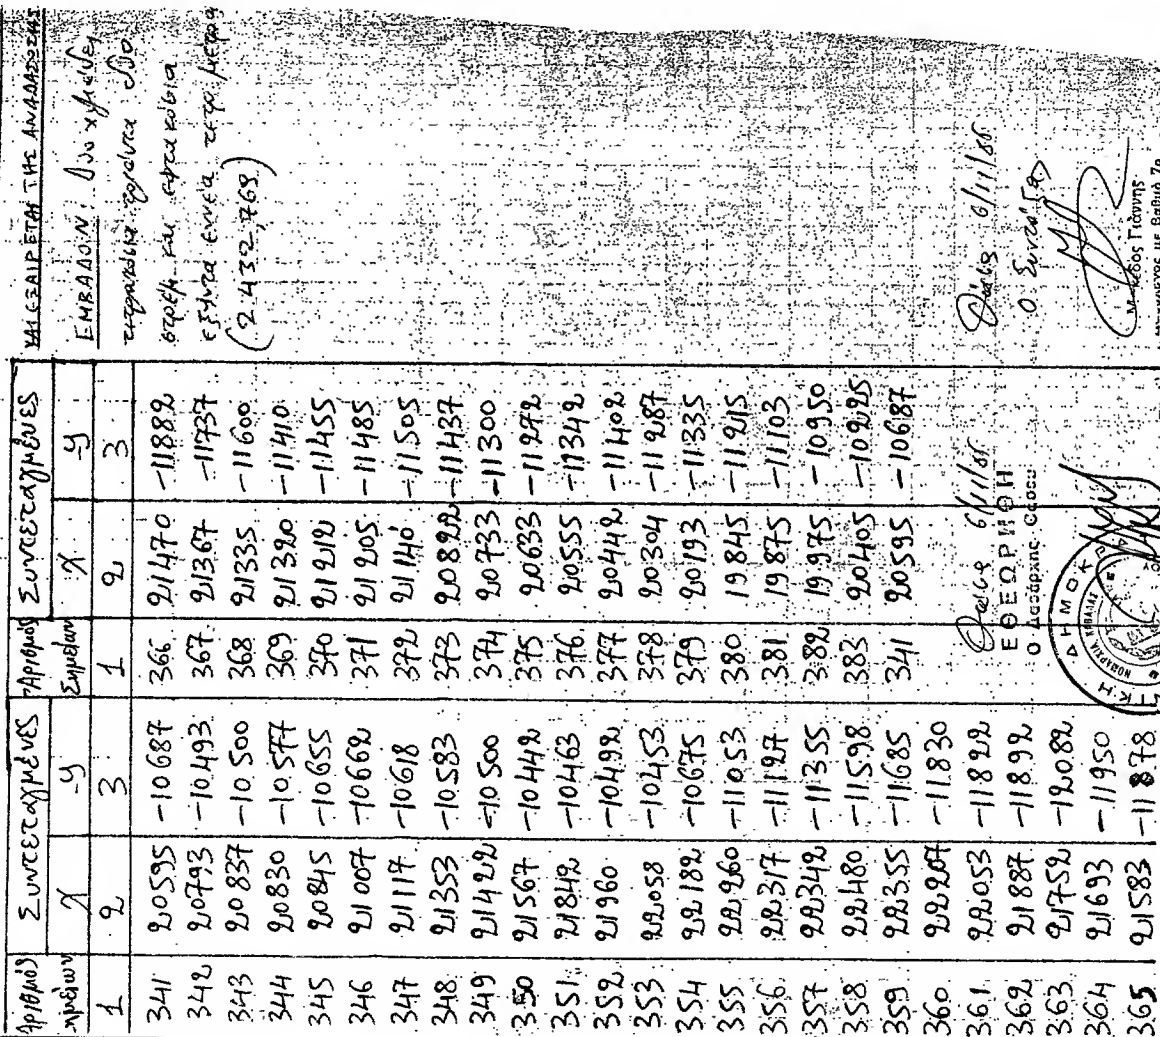 Αριθμός Συντεταγμένες Αριθμός Συντεταγμένες
σημείων Χ -Ψ Σημείων Χ -Ψ
1 2 3 1 2 3
341 20595 -10687 366 21470 -11882
342 20793 -10493 367 21367 -11737
343 20837 -10500 368 21335 -11600
344 20830 -10577 369 21320 -11410
345 20845 -10655 370 21212 -11455
346 21007 -10662 371 21205 -11485
347 21117 -10618 372 21140 -11505
348 21353 -10583 373 20822 -11437
349 21422 -10500 374 20733 -11300
350 21567 -10442 375 20633 -11272
351 21842 -10463 376 20555 -11342
352 21960 -10492 377 20442 -11402
353 22058 -10453 378 20304 -11287
354 22182 -10675 379 20193 -11335
355 22260 -11053 380 19845 -11215
356 22317 -11127 381 19875 -11103
357 22342 -11355 382 19975 -10950
358 22480 -11598 383 20405
359 22355 -11685 341 20595 -10687
360 22207 -11830
361 22053 -11822
362 21887 -11892
363 21752 -12082
364 21693 -11950
365 21583 -11878
ΕΞΑΙΡΕΤΑΙ ΤΗΣ ΑΝΑΔΑΣΩΣΗΣ
ΕΜΒΑΔΟΝ: Δυο χιλιάδες
τετρακόσια τριάντα δυο
στρέμ και εφτακόσια
εξήντα εννεα τετρ. μετρα
(2.432,769)
6/11/86
ΕΘΕΩΡΗΘΗ
Ο Δασάρχης
6/11/86
Ο Συντάξας
Γιάννης
με βαθμό 7ο